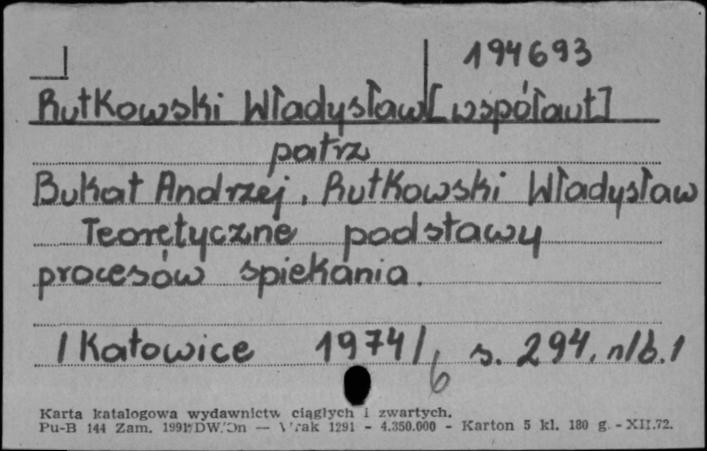 194693
Rutkowski Władysław [współaut]
patrz
Bukat Andrzej, Rutkowski Władysław
Teoretyczne podstawy
procesów spiekania.
/Katowice 1974/, s. 294, nlb. 1
6
Karta katalogowa wydawnictw ciągłych i zwartych.
Pu-B 144 Zam. 1991/DW/Dn — 1291 - 4.350.000 - Karton 5 kl. 180 g. - XII.72.